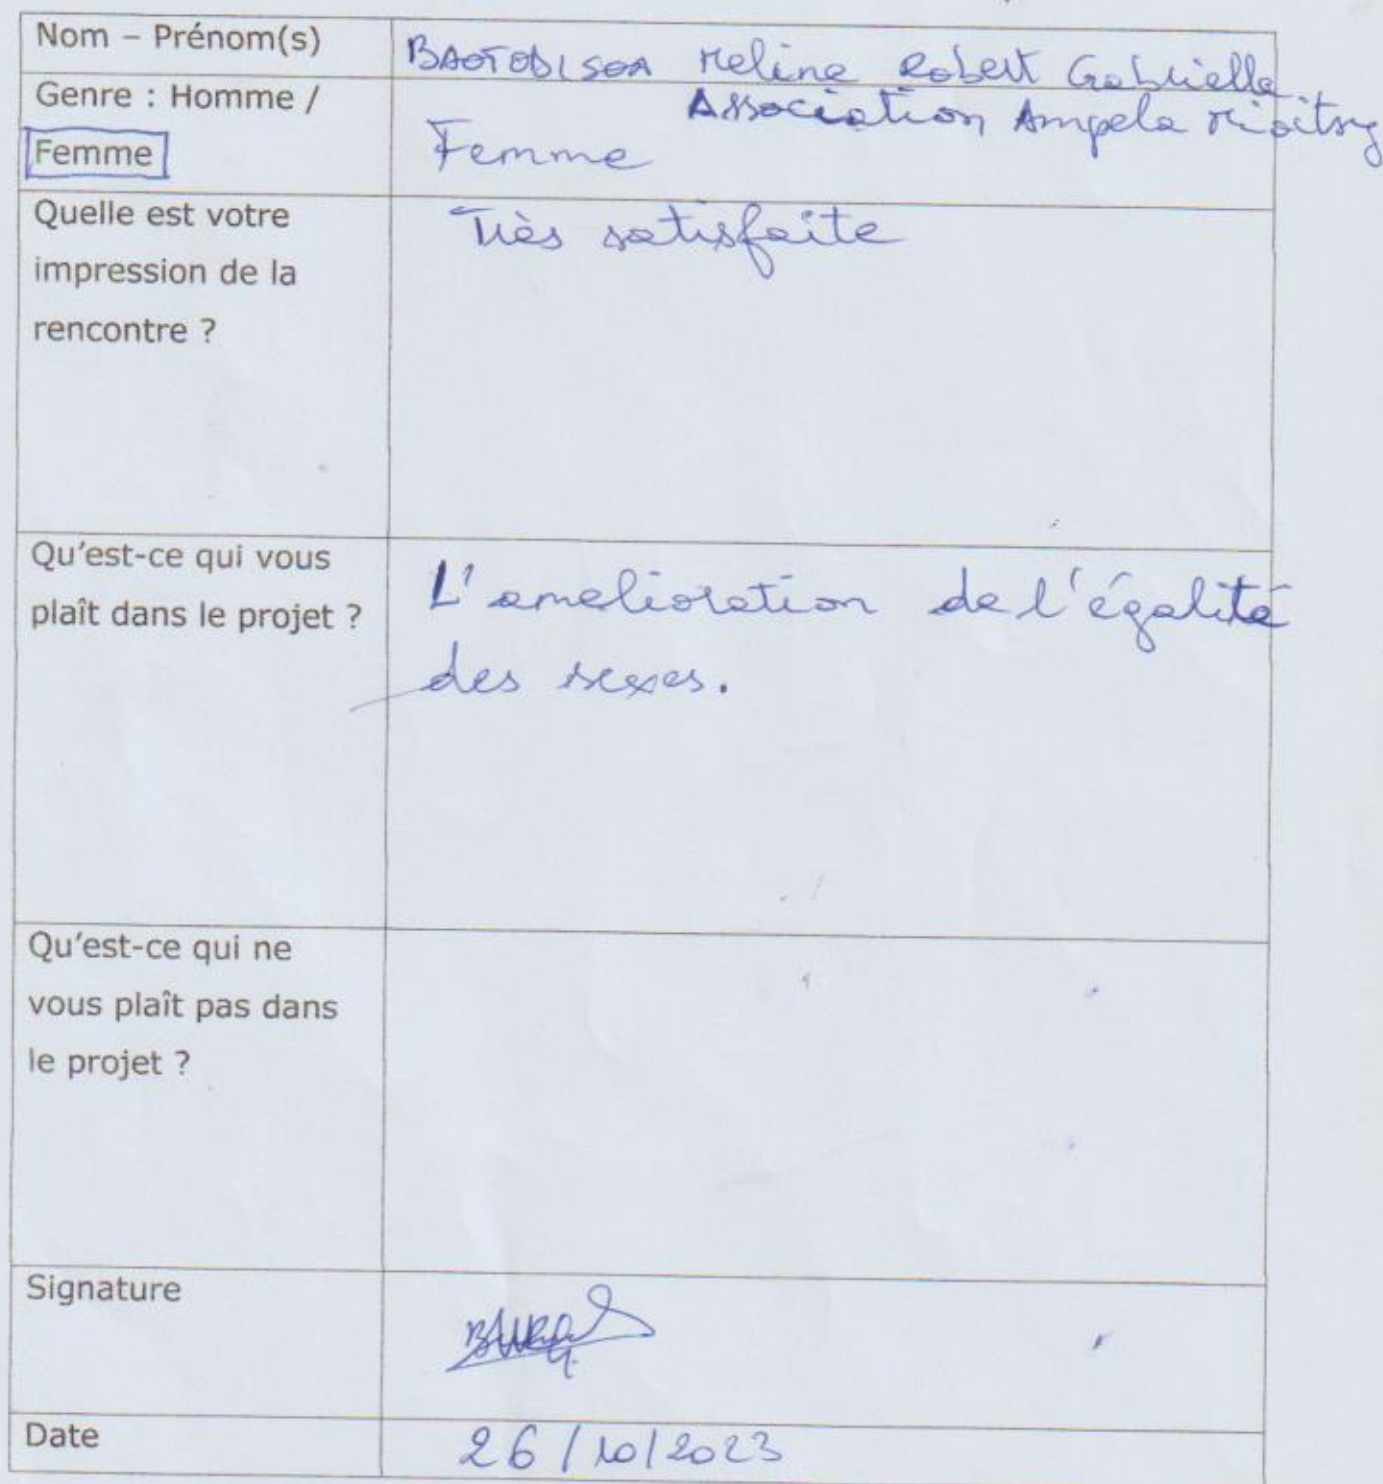 Nom – Prénom(s)
BAOTOBISOA Meline Robert Gabrielle
Association Ampela Mioitry
Genre : Homme /
Femme
Femme
Quelle est votre
impression de la
rencontre ?
Très satisfaite
Qu'est-ce qui vous
plaît dans le projet ?
L'amelioration de l'égalité
des sexes.
Qu'est-ce qui ne
vous plaît pas dans
le projet ?
Signature
Date
26/10/2023